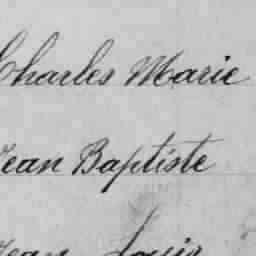 Charles Marie
Jean Baptiste
Jean Louis